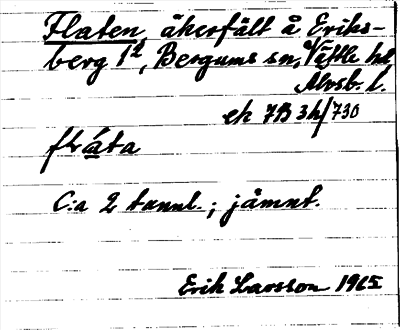 Flaten, åkerfält å Eriks-
berg 1², Bergums sn, Vättle hd
Älvsb. l.
ek 7B 3h/730
flåta
C:a 2 tunnl.; jämnt.
Erik Larsson 1965